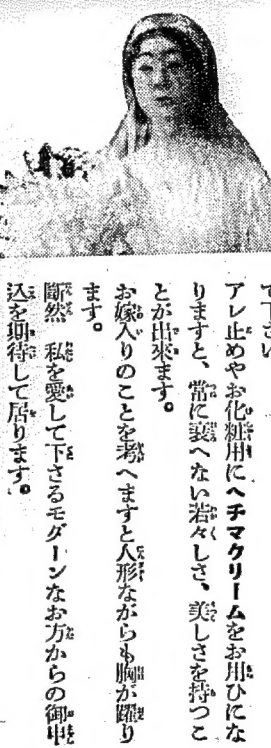 て下さい
アレ止めやお化粧用にヘチマクリームをお用ひにな
りますと、常に衰へない若々しさ、美しさを持つこ
とが出來ます。
お嫁入りのことを考へますと人形ながらも胸が躍り
ます。
斷然 私を愛して下さるモダーンなお方からの御申
込を期待して居ります。